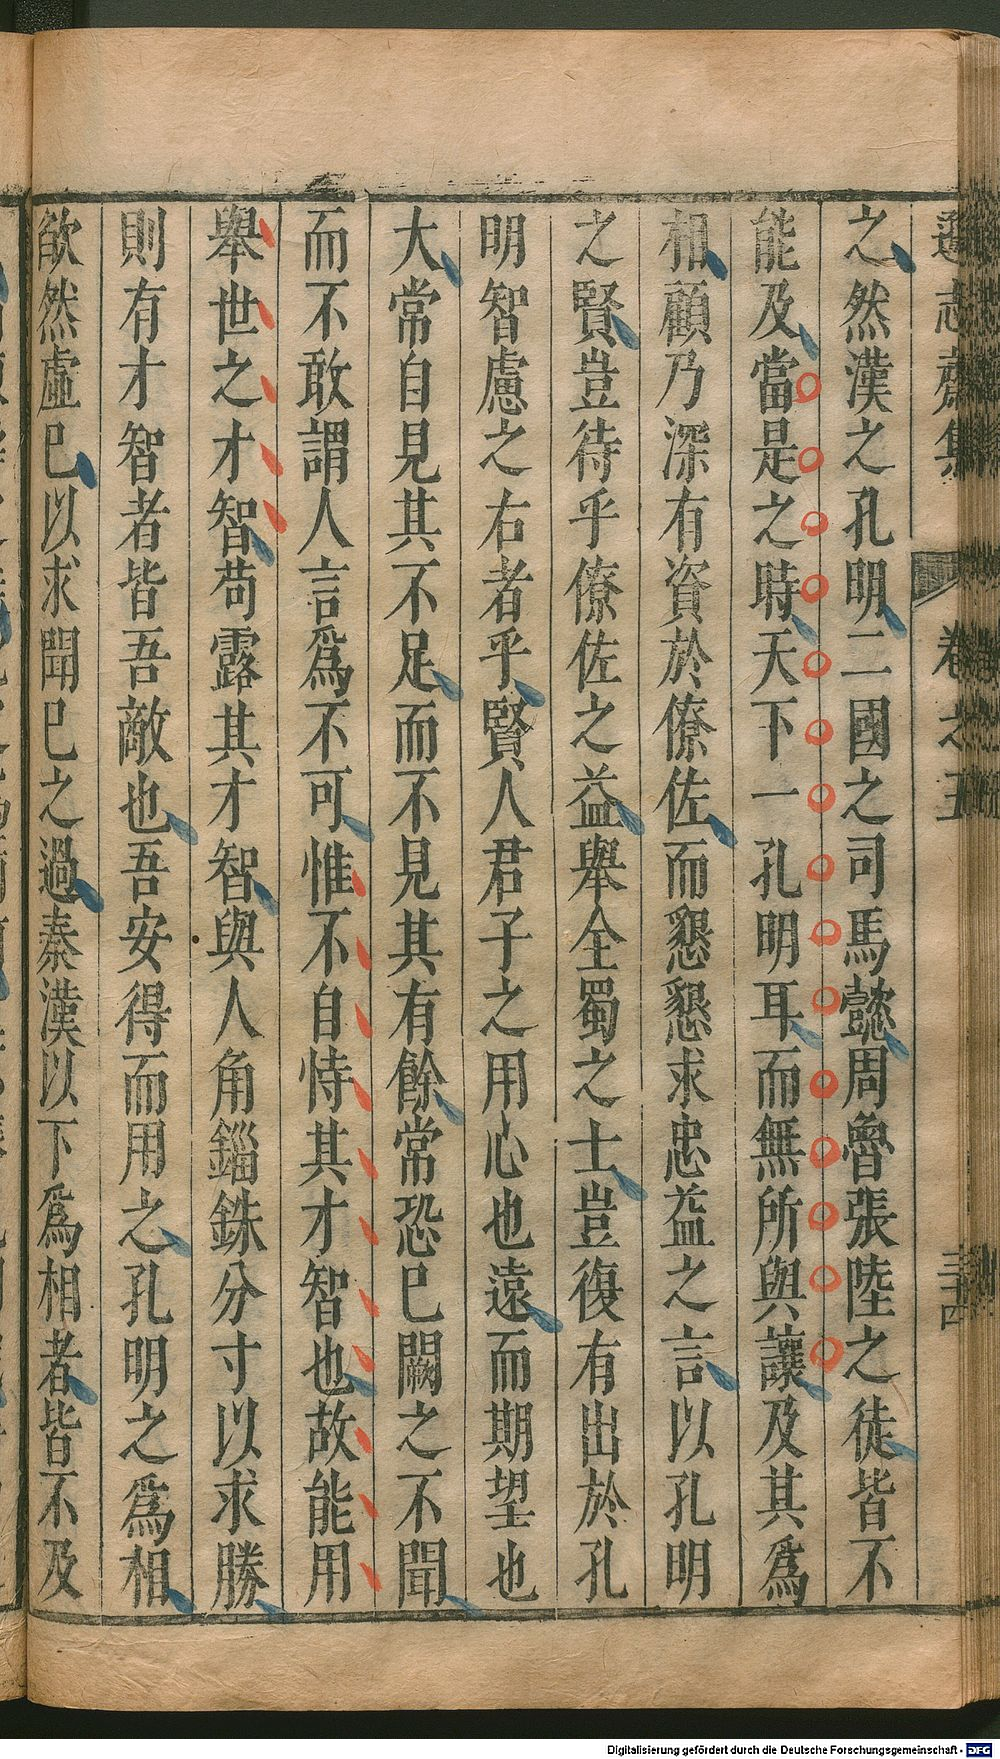 遜志齋集 卷之五 三十四
之然漢之孔明二國之司馬懿周魯張陸之徒皆不
能及當是之時天下一孔明耳而無所與讓及其爲
相顧乃深有資於僚佐而懇懇求忠益之言以孔明
之賢豈待乎僚佐之益舉全蜀之士豈復有出於孔
明智慮之右者乎賢人君子之用心也遠而期望也
大常自見其不足而不見其有餘常恐巳闕之不聞
而不敢謂人言爲不可惟不自恃其才智也故能用
舉世之才智苟露其才智與人角錙銖分寸以求勝
則有才智者皆吾敵也吾安得而用之孔明之爲相
欿然虛巳以求聞巳之過秦漢以下爲相者皆不及
Digitalisierung gefördert durch die Deutsche Forschungsgemeinschaft - DFG